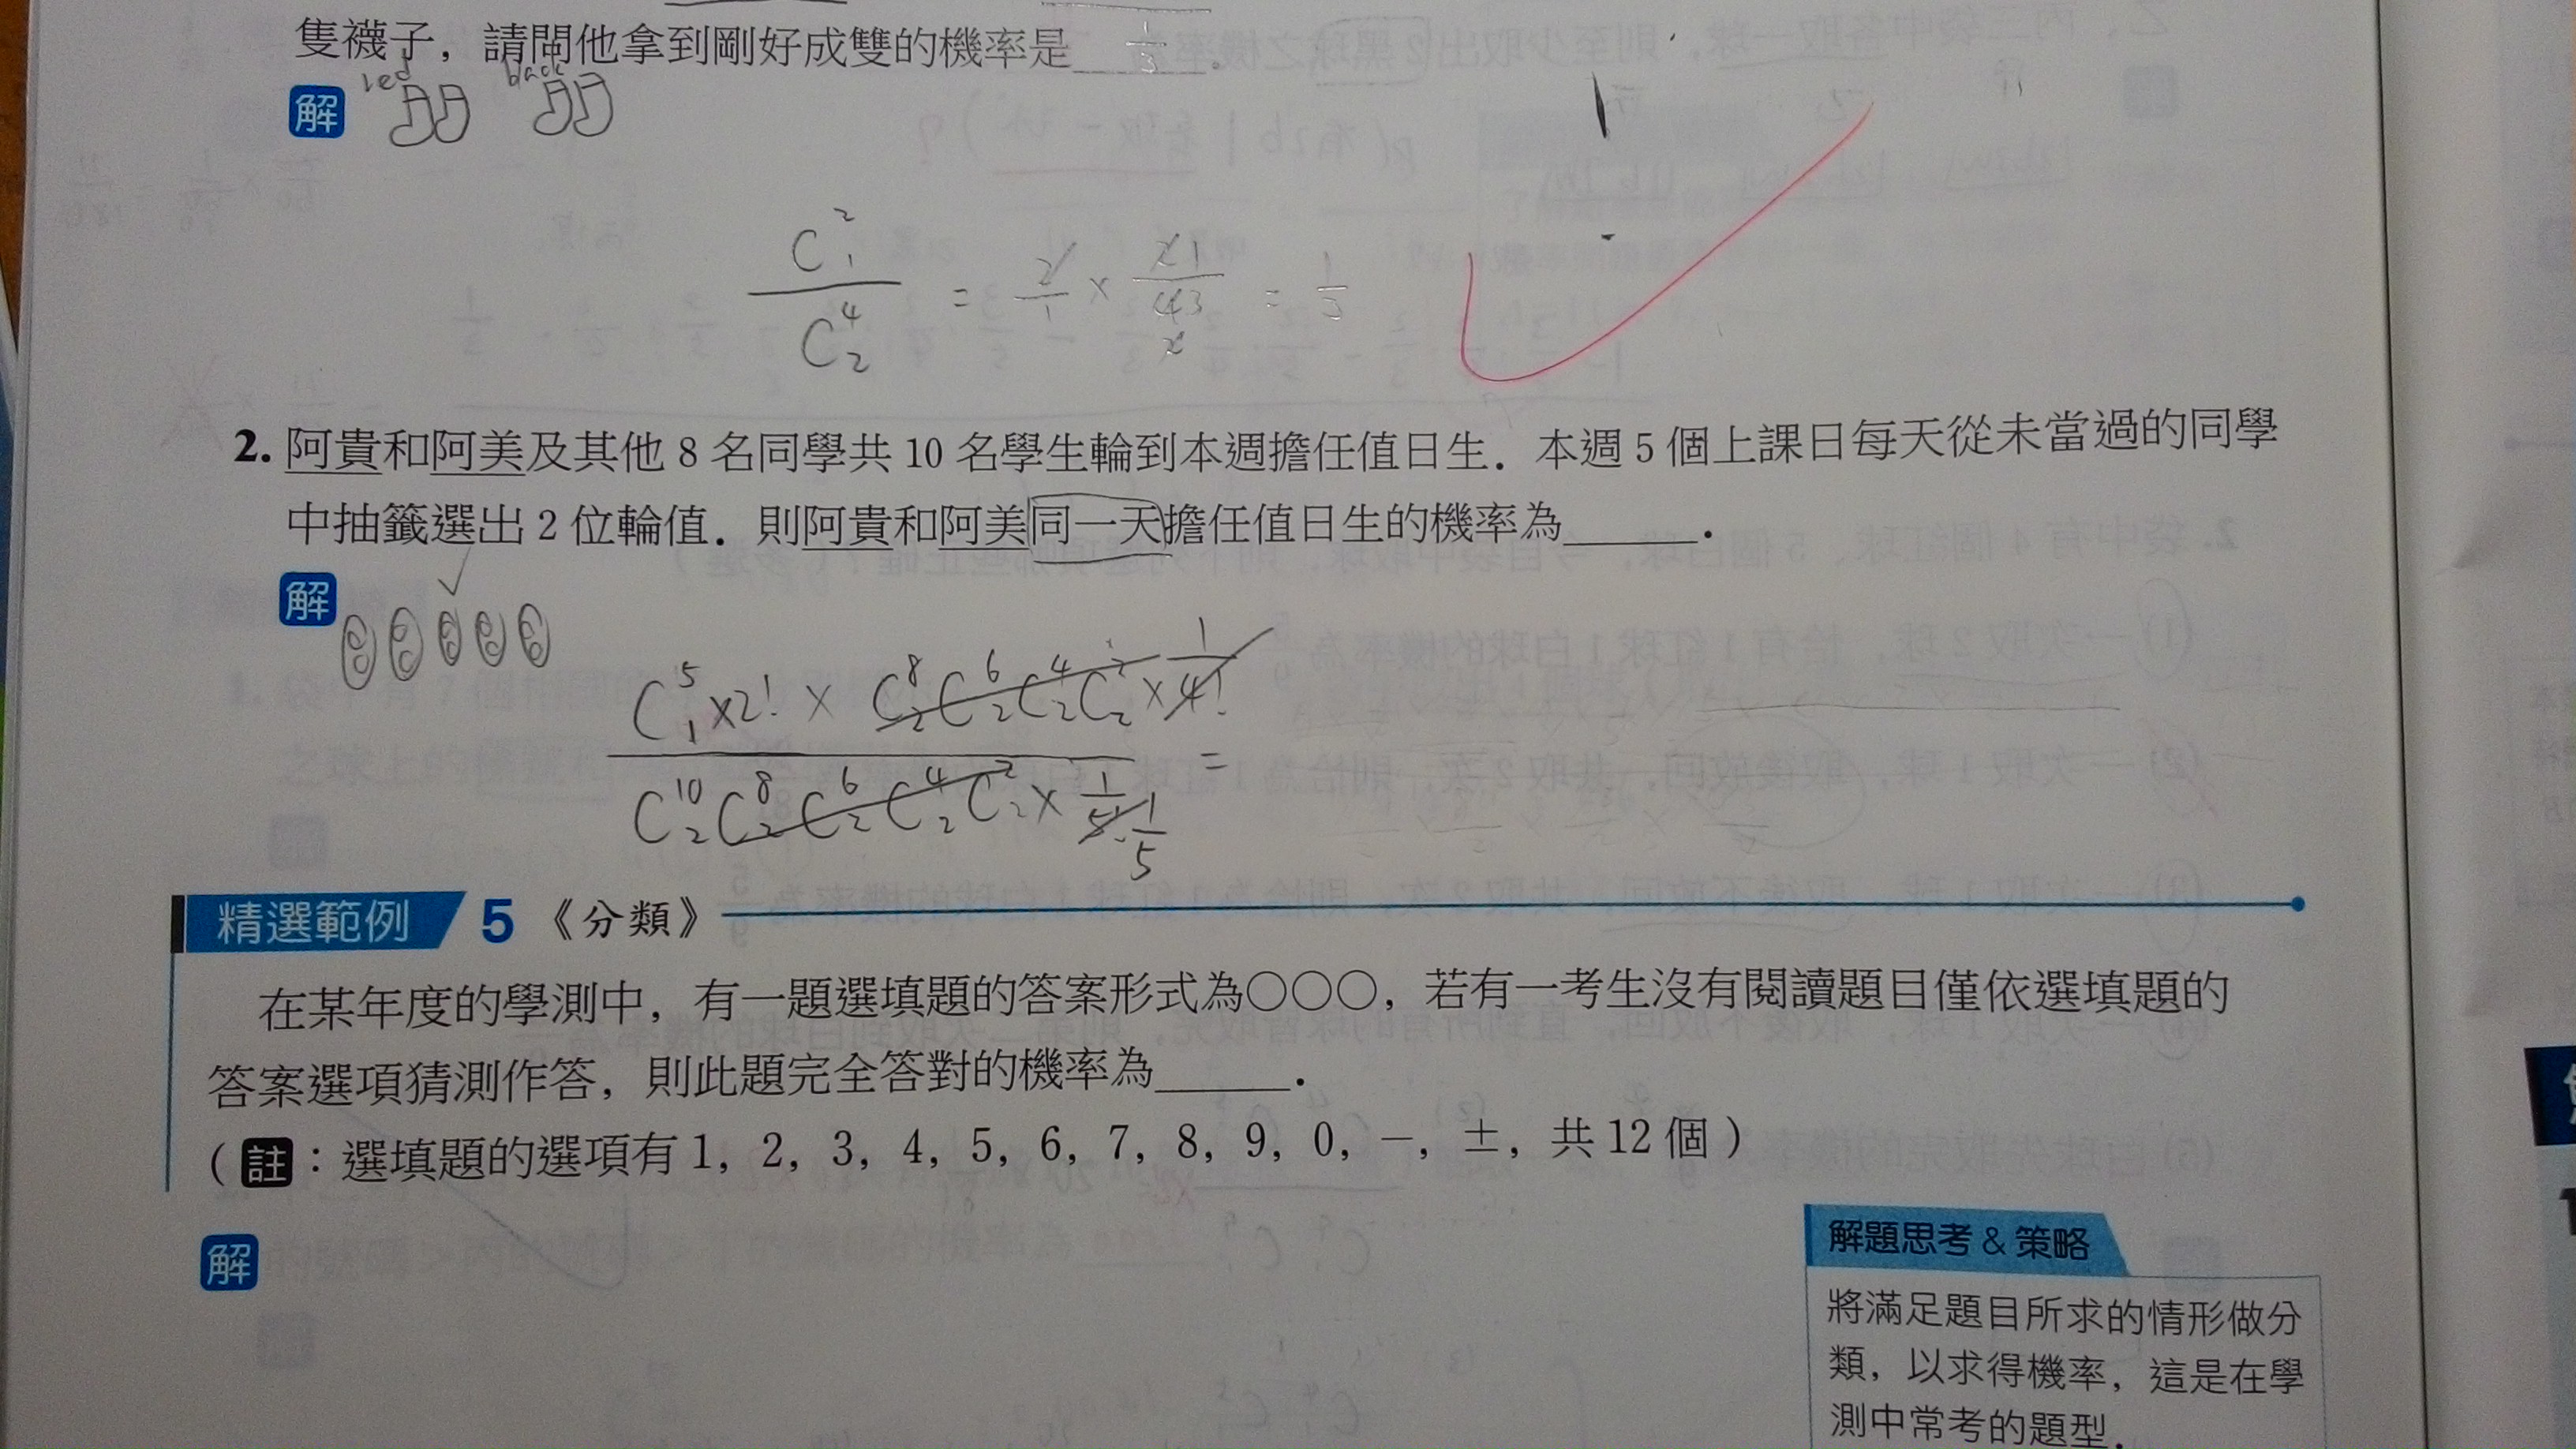 隻襪子，請問他拿到剛好成雙的機率是 1/3 .
解 red black
C²₁ / C⁴₂ = 2/1 × 21/43 2 = 1/3
2. 阿貴和阿美及其他 8 名同學共 10 名學生輪到本週擔任值日生．本週 5 個上課日每天從未當過的同學
中抽籤選出 2 位輪值．則阿貴和阿美同一天擔任值日生的機率為______．
解
C⁵₁ × 2! × C⁸₂ C⁶₂ C⁴₂ C²₂ × 1/4!
C¹⁰₂ C⁸₂ C⁶₂ C⁴₂ C²₂ × 1/5! 1/5 =
精選範例 5 《分類》
在某年度的學測中，有一題選填題的答案形式為○○○，若有一考生沒有閱讀題目僅依選填題的
答案選項猜測作答，則此題完全答對的機率為______．
（註：選填題的選項有 1，2，3，4，5，6，7，8，9，0，－，±，共 12 個）
解
解題思考 & 策略
將滿足題目所求的情形做分
類，以求得機率，這是在學
測中常考的題型．